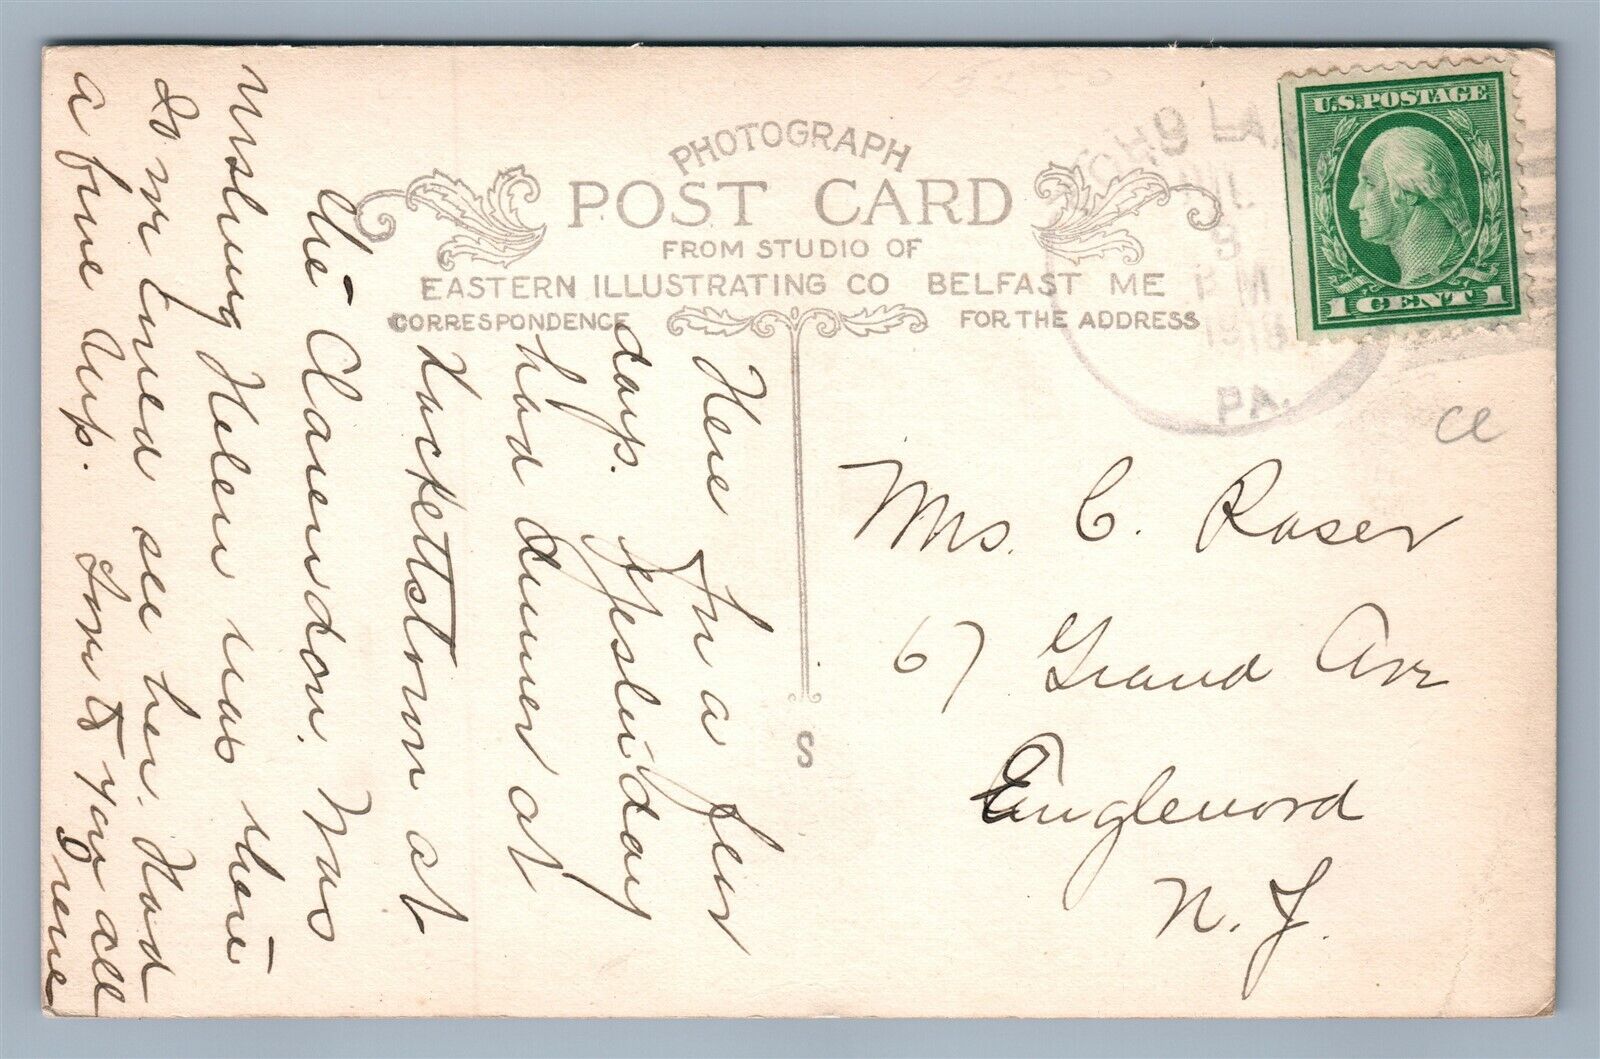 PHOTOGRAPH
POST CARD
FROM STUDIO OF
EASTERN ILLUSTRATING CO BELFAST ME
CORRESPONDENCE
FOR THE ADDRESS
U.S. POSTAGE
1 CENT 1
P M
PA.
ce
Mrs. C. Raser
67 Grand Ave
Englewood
N. J.
S
Here for a few
days. Yesterday
had dinner at
Hackettstown at
the Clarendon. Mrs
Helen was there
so we linied see her. Had
a fine trip. Love to you all
Irene